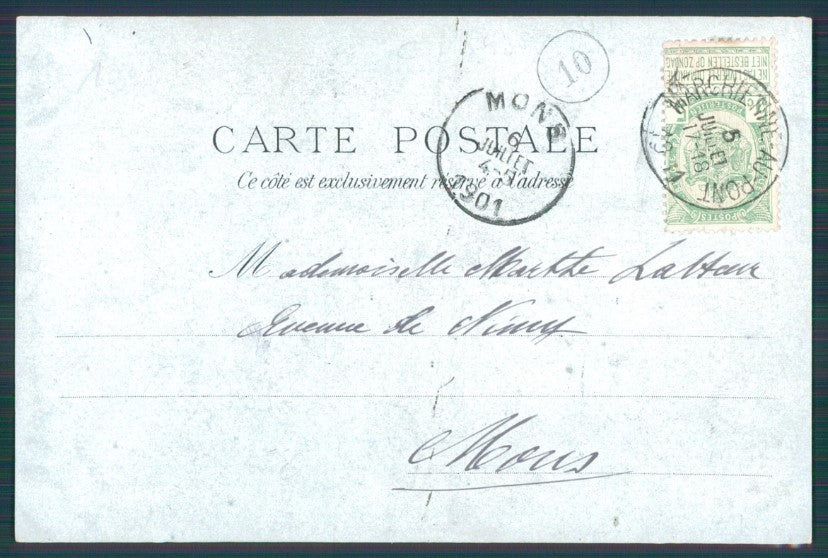 10
NIET BESTELLEN OP ZONDAG
MARCHIENNE-AU-PONT
5
JUILLET
17-18
1901
POSTES
MONS
6
JUILLET
1901
CARTE POSTALE
Ce côté est exclusivement réservé à l'adresse
Mademoiselle Marthe
Avenue de Nimy
Mons